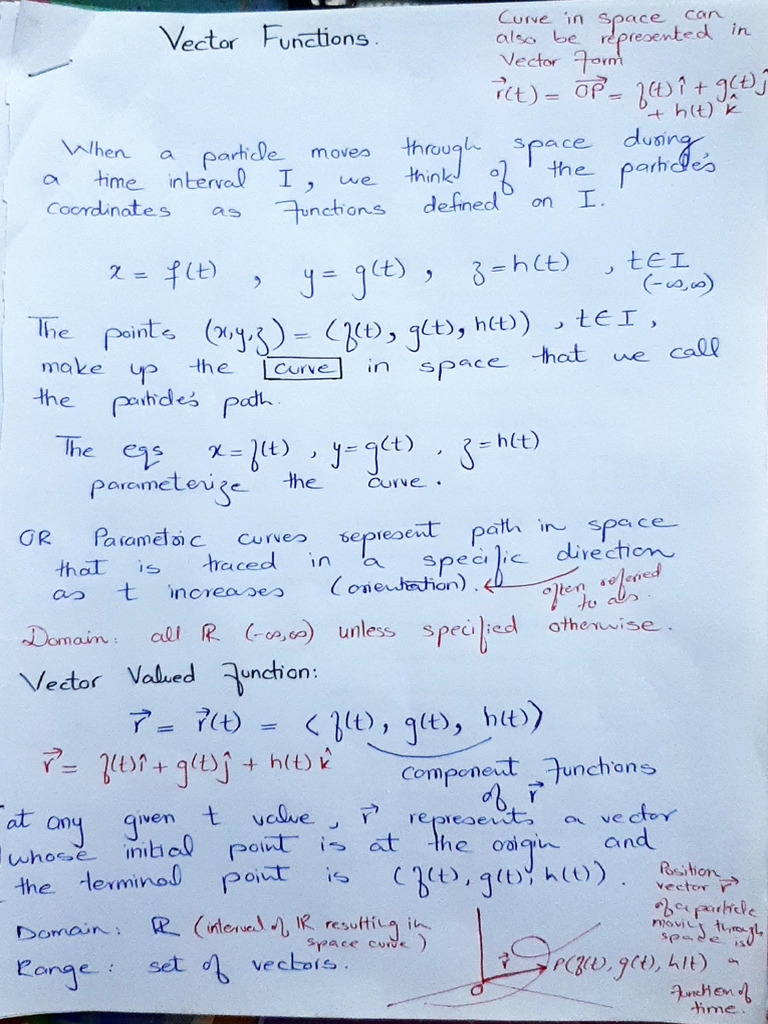 Vector Functions.
Curve in space can
also be represented in
Vector Form
r⃗(t) = OP⃗ = f(t)î + g(t)ĵ
+ h(t) k̂
When a particle moves through space during
a time interval I, we think of the particle's
coordinates as functions defined on I.
x = f(t) , y = g(t) , z = h(t) , t ∈ I
(-∞,∞)
The points (x,y,z) = (f(t), g(t), h(t)) , t ∈ I ,
make up the curve in space that we call
the particle's path.
The eqs x = f(t) , y = g(t) , z = h(t)
parameterize the curve.
OR Parametric curves represent path in space
that is traced in a specific direction
as t increases (orientation).
often referred
to as.
Domain: all ℝ (-∞,∞) unless specified otherwise.
Vector Valued Function:
r⃗ = r⃗(t) = ⟨f(t), g(t), h(t)⟩
r⃗ = f(t)î + g(t)ĵ + h(t) k̂
component Functions
of r⃗
at any given t value, r⃗ represents a vector
whose initial point is at the origin and
the terminal point is (f(t), g(t), h(t)).
Domain: ℝ (interval of ℝ resulting in
space curve)
Range: set of vectors.
r⃗
O
P(f(t), g(t), h(t))
Position
vector r⃗
of a particle
moving through
space is
a
function of
time.